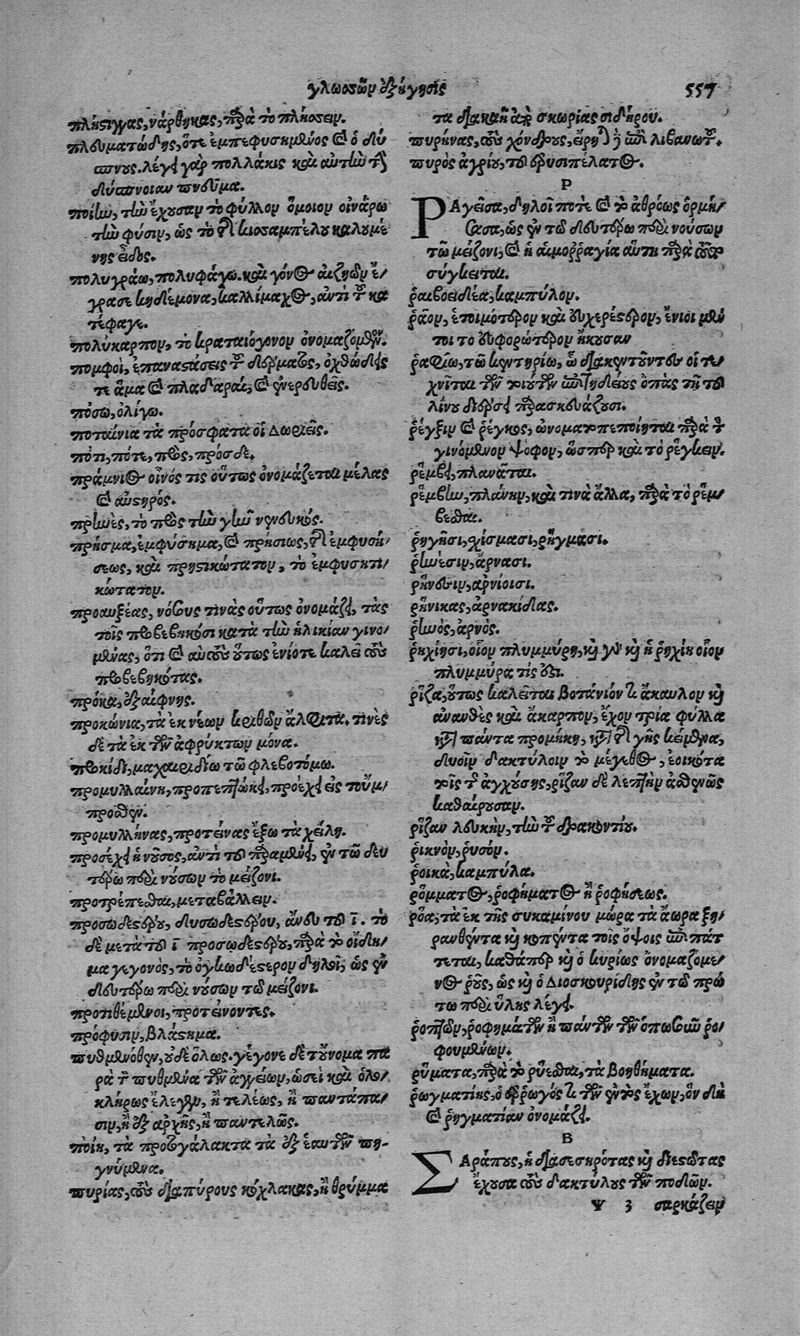 γλωσσῶν ἐξήγησις 557
πλήστιγγας, νάρθηκας, παρὰ τὸ πλήσσειν.
πλευματώδης, ὅτε ἐμπεφυσημένος καὶ ὁ δύ/
σπνους. λέγει γὰρ πολλάκις καὶ αὐτὴν τὴν
δύσπνοιαν πνεῦμα.
ποίην, τὴν ἔχουσαν τὸ φύλλον ὅμοιον οἰνάρω
τὴν φύσιν, ὡς τὸ τῆς κιοσαμπέλου καλουμέ/
νης εἶδος.
πολυγράω, πολυφάγω. καὶ γόνος αἰζηῶν ἔ/
γρασε κηδεμόνα, καλλίμαχος, ἀντὶ τοῦ κα
τέφαγε.
πολύκαρπον, τὸ κραταιόγονον ὀνομαζόμενον.
πομφοὶ, ἐπαναστάσεις τοῦ δέρματος, ὀχθώδεις
τε ἅμα καὶ πλαδαραὶ, καὶ ἐνερευθεῖς.
πόσω, ὀλίγω.
ποταίνια τὰ πρόσφατα οἱ Δωριεῖς.
ποτὶ, ποτὲ, πρὸς, πρόσθε.
πράμνιος οἶνός τις οὕτως ὀνομάζεται μέλας
καὶ αὐστηρός.
πρηνὲς, τὸ πρὸς τὴν γῆν νενευκός.
πρῆσμα, ἐμφύσημα, καὶ πρήσιος, τῆς ἐμφυσή/
σεως, καὶ πρηστικώτατον, τὸ ἐμφυσητι/
κώτατον.
προαυξέας, νόσους τινὰς οὕτως ὀνομάζει, τὰς
τοῖς προβεβηκόσι κατὰ τὴν ἡλικίαν γινο/
μένας, ὅτι καὶ αὐτοὺς οὕτως ἐνίοτε καλεῖ τοὺς
προβεβηκότας.
πρόκα, ἐξαίφνης.
προκώνια, τὰ ἐκ νέων κριθῶν ἄλφιτα. τινὲς
δὲ τὰ ἐκ τῶν ἀφρύκτων μόνα.
προκίδι, μαχαιριδίω τῶ φλεβοτόμω.
προμυλλαίνη, προπεπτώκει, προέχει εἰς τοὔμ/
προσθεν.
προμυλλήνας, προτείνας ἔξω τὰ χείλη.
προσέχει ἡ νοῦσος, ἀντὶ τοῦ παραμένει, ἐν τῶ δευ
τέρω περὶ νούσων τὸ μείζονι.
προτρέπεσθαι, μεταβάλλειν.
προσωδεστέρου, δυσωδεστέρου, ἄνευ τοῦ ῑ. τὸ
δὲ μετὰ τοῦ ῑ προσωδεστέρου, παρὰ τὸ οἴδη/
μα γεγονὸς, τὸ ὀγκωδέστερον δηλοῖ, ὡς ἐν
δευτέρω περὶ νούσων τῶ μείζονι.
προτιθέμενοι, προτείνοντες.
πρόφυσιν, βλάστημα.
πυθμενόθεν, οὐδὲ ὅλως. γέγονε δὲ τοὔνομα πα
ρὰ τοῦ πυθμένα τῶν ἀγγείων, ὡσεὶ καὶ ὁλο/
κλήρως ἔλεγεν, ἢ τελέως, ἢ πανταπα/
σιν, ἢ ἐξ ἀρχῆς, ἢ παντελῶς.
πύη, τὰ πρωτογάλακτα τὰ ἐξ ἑαυτῶν πη-
γνύμενα.
πυρίας, τοὺς διαπύρους κόχλακας, ἢ θρύμμα
τα διακαῆ ἀπὸ σκωρίας σιδήρου.
πυρῆνας, τοὺς χόνδρους, εἴρηται ἢ ἐπὶ λιβανωτοῦ.
πυρὸς ἀγρίου, τοῦ ἐρυσιπέλατος.
Ρ
ΡΑγεῖσα, δηλοῖ ποτὲ καὶ τὸ ἀθρόως ὁρμή/
σασα, ὡς ἐν τῶ δευτέρω περὶ νούσων
τῶ μείζονι, καὶ ἡ αἱμορραγία αὕτη παρὰ τοῦτο
σύγκειται.
ῥαιβοειδέα, καμπύλον.
ῥᾷον, ἑτοιμότερον καὶ εὐχερέστερον, ἔνιοι μέν
τοι τὸ εὐφορώτερον ἤκουσαν
ῥαφίω, τῶ κεντηρίω, ὧ διακεντοῦντες οἱ τε/
χνῖται τῶν τοιούτων ἐπιτηδείους ὀπὰς τῆ τοῦ
λίνου διέρσει παρασκευάζουσι.
ῥέγξιν καὶ ῥέγκος, ὠνοματοπεποίηται παρὰ τὸν
γινόμενον ψόφον, ὥσπερ καὶ τὸ ῥέγκειν.
ῥέμβει, πλανᾶται.
ῥέμβην, πλάνην, καὶ τινὰ ἄλλα, παρὰ τὸ ῥέμ/
βεσθαι.
ῥηγῆσι, χίσμασι, ῥήγμασι.
ῥήνεσιν, ἄρνασι.
ῥήνεσιν, ἀρνίοισι.
ῥήνικας, ἀρνακίδας.
ῥηνὸς, ἀρνός.
ῥηχίησι, οἷον πλυμμύρη, καὶ γὰρ καὶ ἡ ῥηχίη οἷον
πλυμμύρα τίς ἐστι.
ῥίζα, οὕτως καλεῖται βοτάνιόν τι ἄκαυλον καὶ
ἀνανθὲς καὶ ἄκαρπον, ἔχον τρία φύλλα
κατὰ πάντα προμήκη, κατὰ τῆς γῆς κείμενα,
δυοῖν δακτύλοιν τὸ μέγεθος, ἐοικότα
τοῖς τῆς ἀγχούσης, ῥίζαν δὲ λεπτὴν ἀσθενῶς
καθαίρουσαν.
ῥίζαν λευκὴν, τὴν τοῦ δρακοντίου.
ῥικνὸν, ῥυσόν.
ῥοικὰ, καμπύλα.
ῥόμματος, ῥοφήματος ἢ ῥοφήσεως.
ῥόα, τὰ ἐκ τῆς συκαμίνου μῶρα τὰ ἄωρα ξη/
ρανθέντα καὶ κοπέντα τοῖς ὄψοις ἐπιπάτ
τεται, καθάπερ καὶ ὁ κυρίως ὀνομαζόμε/
νος ῥοῦς, ὡς καὶ ὁ Διοσκουρίδης ἐν τῶ πρώ
τω περὶ ὕλης λέγει.
ῥοπτῶν, ῥοφημάτων ἢ πάντων τῶν ὁπωσοῦν ῥο/
φουμένων.
ῥύματα, παρὰ τὸ ῥύεσθαι, τὰ βοηθήματα.
ῥωγματίης, ὁ ῥωγός τι τῶν ἐντὸς ἔχων, ὃν δὴ
καὶ ῥηγματίαν ὀνομάζει.
Β
ΣΑράπους, ἡ διασεσηρότας καὶ διεστῶτας
ἔχουσα τοὺς δακτύλους τῶν ποδῶν.
Ψ 3 σαρκάζειν